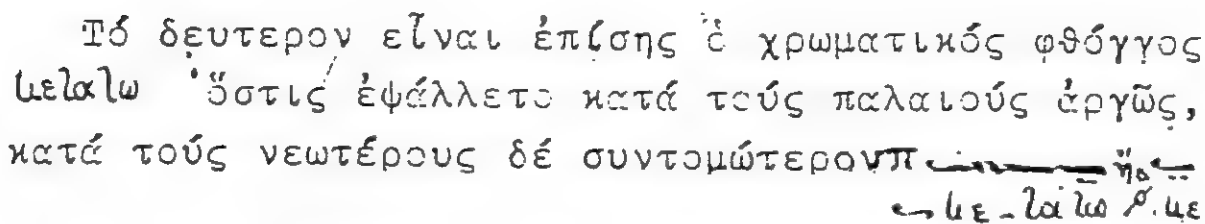 Τό δευτερον εἶναι ἐπίσης ὁ χρωματικός φθόγγος
μεταίω ὅστις ἐψάλλετο κατά τούς παλαιούς ἀργῶς,
κατά τούς νεωτέρους δέ συντομώτερον